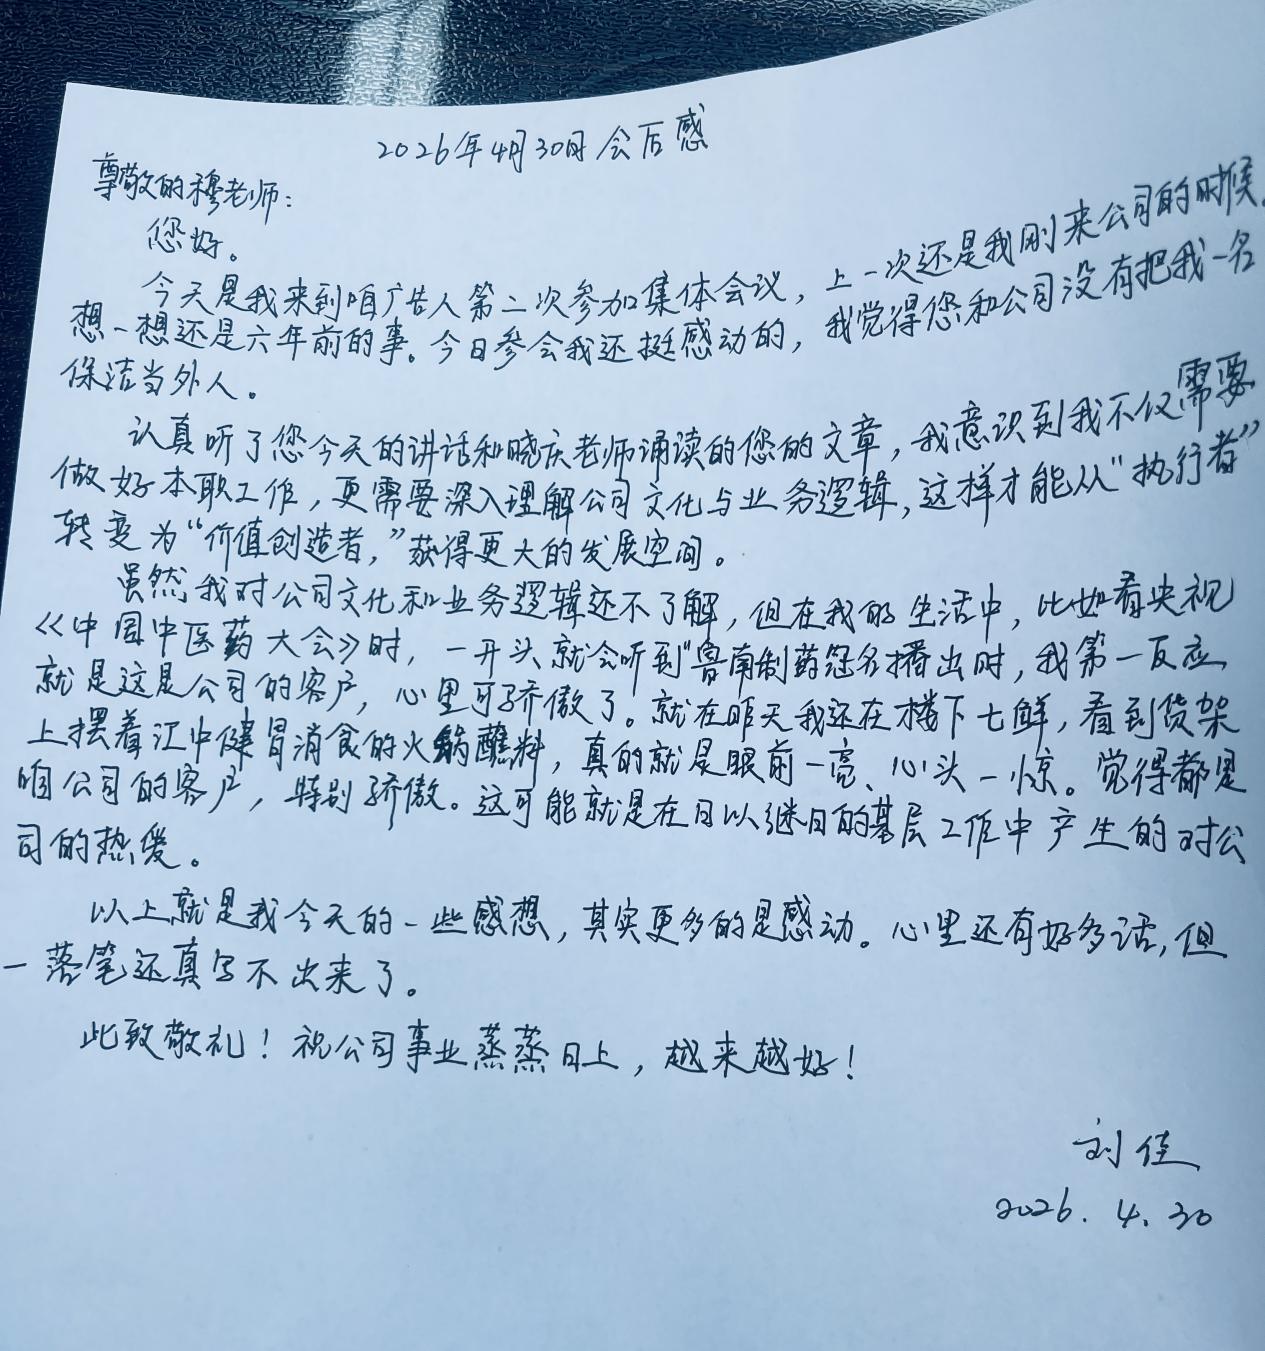 2026年4月30日会后感
尊敬的穆老师：
您好。
今天是我来到咱广告人第二次参加集体会议，上一次还是我刚来公司的时候。
想一想还是六年前的事。今日参会我还挺感动的，我觉得您和公司没有把我一名
保洁当外人。
认真听了您今天的讲话和晓庆老师诵读的您的文章，我意识到我不仅需要
做好本职工作，更需要深入理解公司文化与业务逻辑，这样才能从“执行者”
转变为“价值创造者，”获得更大的发展空间。
虽然我对公司文化和业务逻辑还不了解，但在我的生活中，比如看央视
《中国中医药大会》时，一开头就会听到“鲁南制药冠名播出时，我第一反应
就是这是公司的客户，心里可骄傲了。就在昨天我还在楼下七鲜，看到货架
上摆着江中健胃消食的火锅蘸料，真的就是眼前一亮、心头一惊。觉得都是
咱公司的客户，特别骄傲。这可能就是在日以继日的基层工作中产生的对公
司的热爱。
以上就是我今天的一些感想，其实更多的是感动。心里还有好多话，但
一落笔还真写不出来了。
此致敬礼！祝公司事业蒸蒸日上，越来越好！
刘佳
2026.4.30